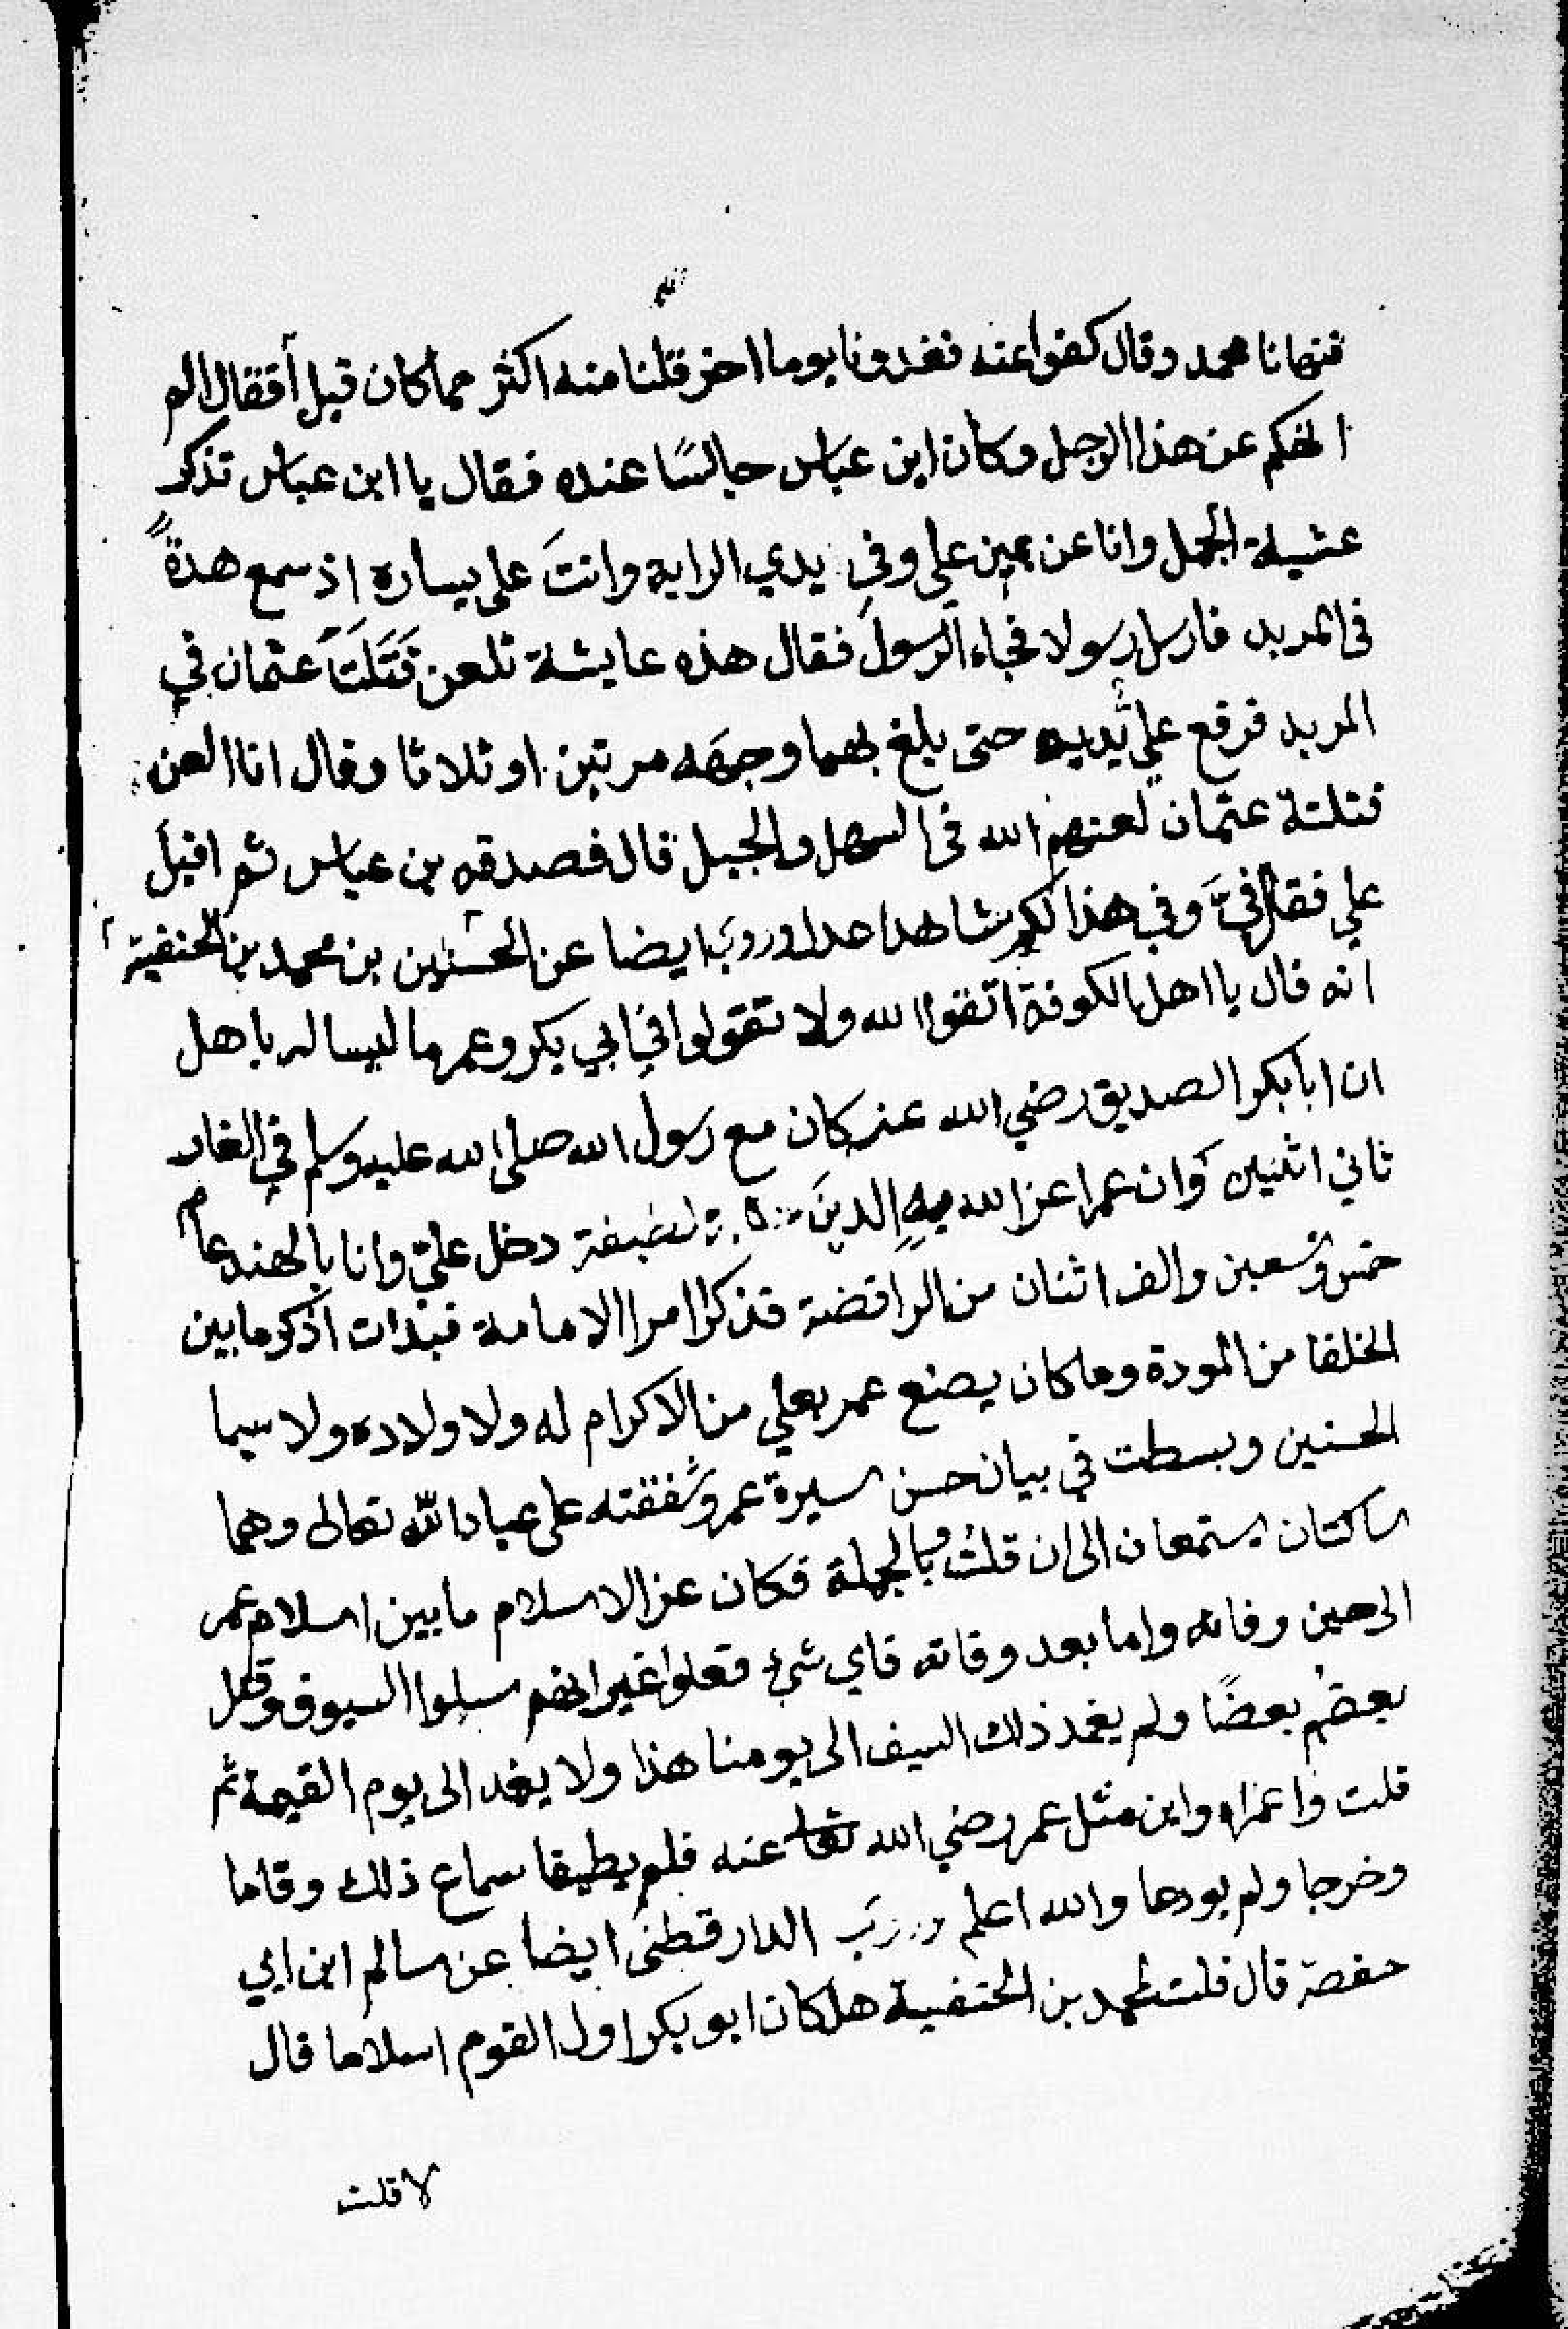 فنهانا محمد وقال كفوا عنه فغدونا يوما اخر فلنا منه اكثر مما كان قبل فقال الم
انهكم عن هذا الرجل وكان ابن عباس جالسًا عنده فقال يا ابن عباس تذكر
عشية الجمل وانا عن يمين علي وفي يدي الراية وانتَ على يساره اذ سمع هدةً
في المربد فارسل رسولا فجاء الرسول فقال هذه عايشة تلعن قَتَلَتَ عثمان في
المربد فرفع علي يديه حتى بلغ بهما وجهَه مرتين او ثلاثا وقال انا العن
قتلتة عثمان لعنهم الله في السهل والجبل قال فصدقه بن عباس ثم اقبل
علي فقال فيَّ وفي هذا لكم شاهدا عدل وروي ايضا عن الحسين بن محمد بن الحنفية
انه قال يا اهل الكوفة اتقوا الله ولا تقولوا في ابي بكر وعمر ما ليسا له باهل
ان ابا بكر الصديق رضي الله عنه كان مع رسول الله صلى الله عليه وسلم في الغار
ثاني اثنين وان عمر اعز الله به الدين لطيفة دخل عليّ وانا بالهند عام
خمس وتسعين والف اثنان من الرافضة فذكرا امر الامامة فبدات اذكر ما بين
الخلفا من المودة وما كان يصنع عمر بعلي من الاكرام له ولاولاده ولا سيما
الحسنين وبسطت في بيان حسن سيرة عمر وشفقته على عباد الله تعالى وهما
ساكتان يستمعان الى ان قلتُ وبالجملة فكان عز الاسلام ما بين اسلام عمر
الى حين وفاته واما بعد وفاته فاي شيء فعلوا غير انهم سلوا السيوف وقتل
بعضهم بعضًا ولم يغمد ذلك السيف الى يومنا هذا ولا يغمد الى يوم القيمة ثم
قلت واعمراه واين مثل عمر رضي الله تعالى عنه فلم يطيقا سماع ذلك وقاما
وخرجا ولم يعودا والله اعلم وروي الدارقطنى ايضا عن سالم ابن ابي
حفصة قال قلت لمحمد بن الحنفية هل كان ابو بكر اول القوم اسلاما قال
لا قلت